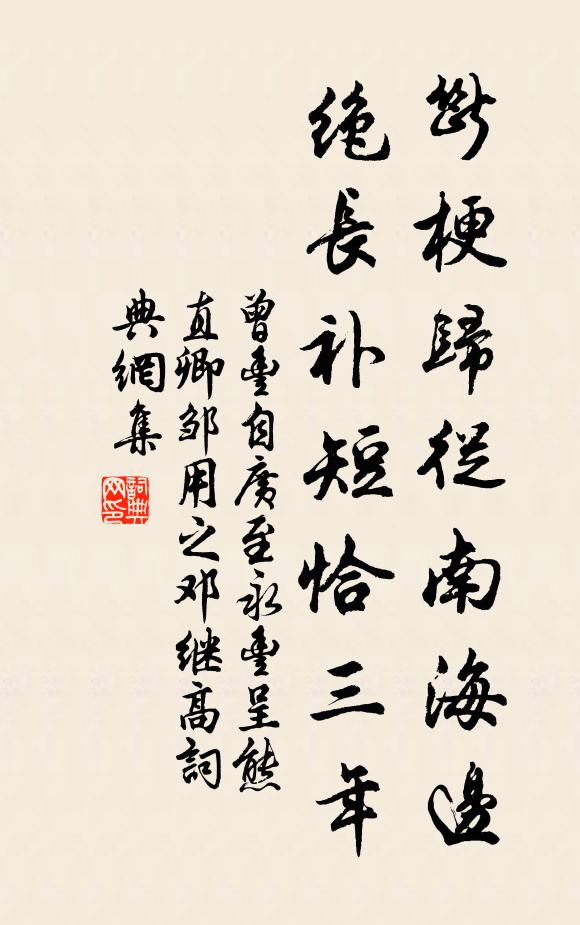 斷梗歸從南海邊
絶長补短恰三年
曾豊自廣至永豊呈熊
直卿邹用之邓继高詞
典網集
詞典
网印